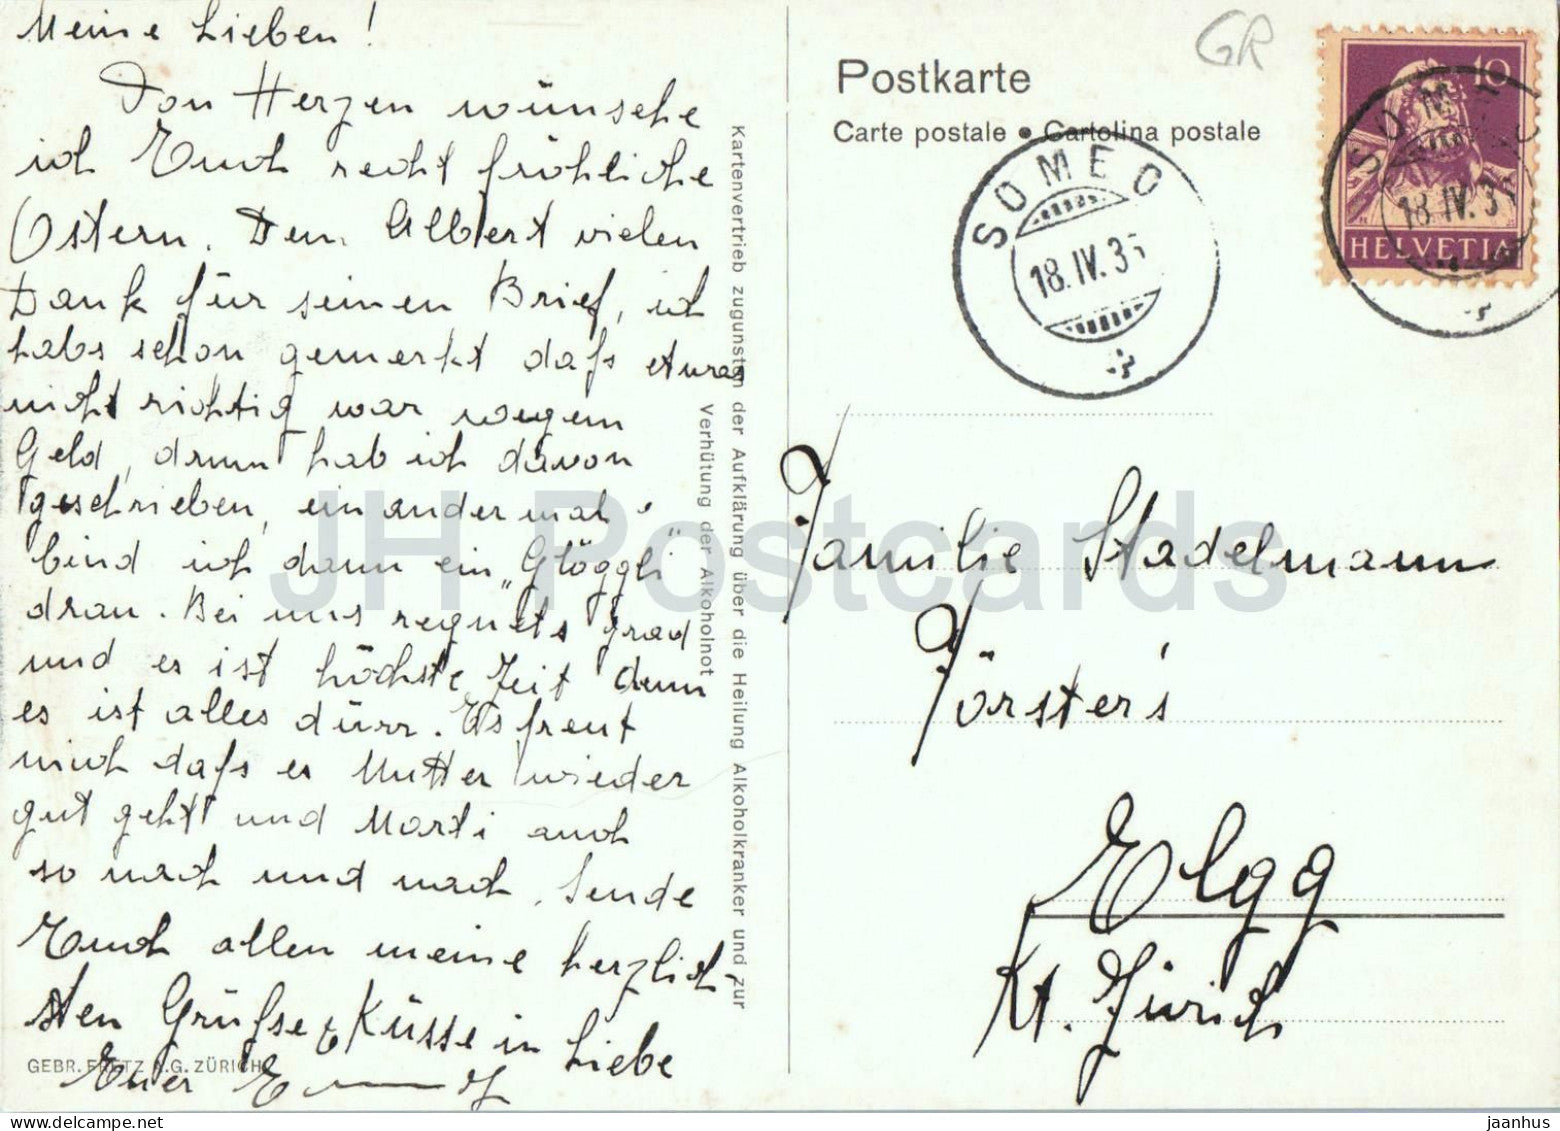 Meine Lieben!
Von Herzen wünsche
ich Euch recht fröhliche
Ostern. Dem Albert vielen
Dank für seinen Brief, ich
habs schon gemerkt dafs etwas
nicht richtig war wegem
Geld, drum hab ich davon
geschrieben, ein ander mal
bind ich dann ein „Glöggli"
dran. Bei uns regnets grad
und es ist höchste Zeit denn
es ist alles dürr. Es freut
mich dafs es Mutter wieder
gut geht und Marti auch
so nach und nach. Sende
Euch allen meine herzlich-
sten Grüfse & Küsse in Liebe
Euer
GEBR. FRETZ A.G. ZÜRICH
Kartenvertrieb zugunsten der Aufklärung über die Heilung Alkoholkranker und zur
Verhütung der Alkoholnot
GR
Postkarte
Carte postale • Cartolina postale
SOMEO
18.IV.35
10
HELVETIA
SOMEO
18.IV.35
Familie Stadelmann
Förster's
Elgg
Kt. Zürich
JH Postcards
jaanhus